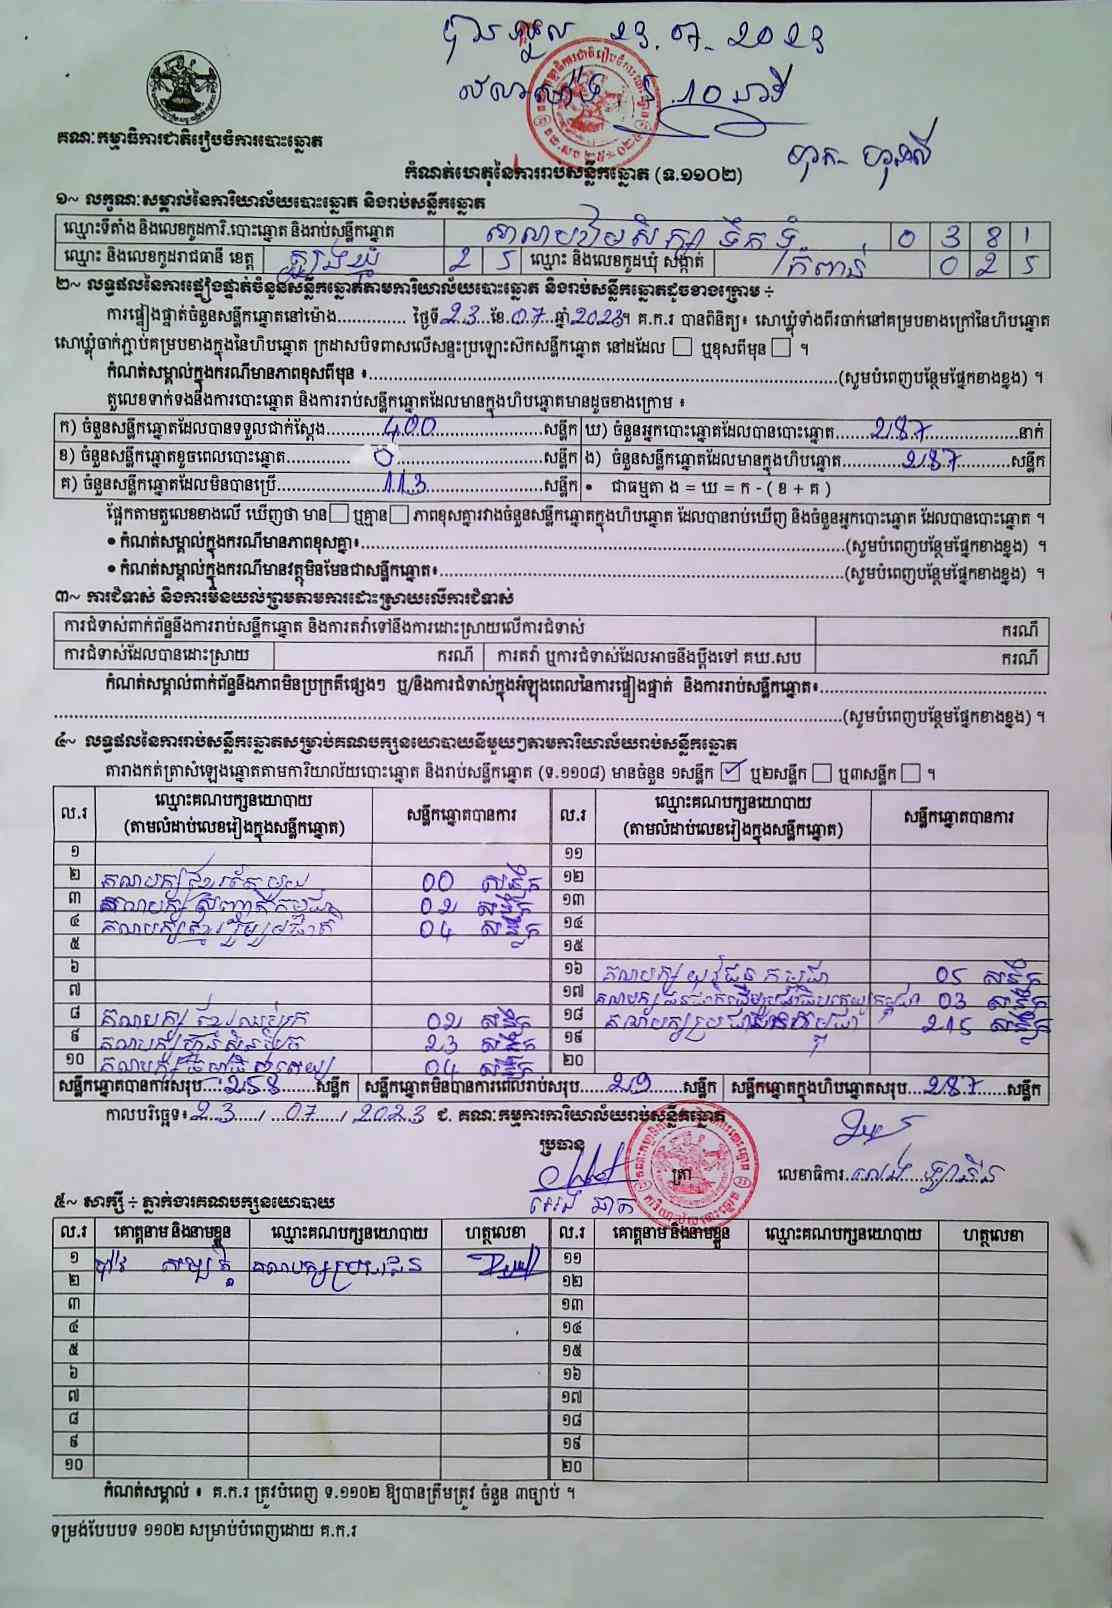 បានទទួល 23.07.2023
10 នាទី
គណៈកម្មាធិការជាតិរៀបចំការបោះឆ្នោត
កំណត់ហេតុនៃការរាប់សន្លឹកឆ្នោត (ទ.១១០២)
១~ លក្ខណៈសម្គាល់នៃការិយាល័យបោះឆ្នោត និងរាប់សន្លឹកឆ្នោត
ឈ្មោះទីតាំង និងលេខកូដការិ.បោះឆ្នោត និងរាប់សន្លឹកឆ្នោត 0 3 8 1
ឈ្មោះ និងលេខកូដរាជធានី ខេត្ត ត្បូងឃ្មុំ 2 5 ឈ្មោះ និងលេខកូដឃុំ សង្កាត់ 0 2 5
២~ លទ្ធផលនៃការផ្ទៀងផ្ទាត់ចំនួនសន្លឹកឆ្នោតតាមការិយាល័យបោះឆ្នោត និងរាប់សន្លឹកឆ្នោតដូចខាងក្រោម ÷
ការផ្ទៀងផ្ទាត់ចំនួនសន្លឹកឆ្នោតនៅម៉ោង.............. ថ្ងៃទី 23 ខែ 07 ឆ្នាំ 2023។ គ.ក.រ បានពិនិត្យ៖ សោឃ្លុំទាំងពីរចាក់នៅគម្របខាងក្រៅនៃហិបឆ្នោត
សោឃ្លុំចាក់ភ្ជាប់គម្របខាងក្នុងនៃហិបឆ្នោត ក្រដាសបិទពាសលើសន្ទះប្រឡោះស៊កសន្លឹកឆ្នោត នៅដដែល ☐ ឬខុសពីមុន ☐ ។
កំណត់សម្គាល់ក្នុងករណីមានភាពខុសពីមុន ៖..............(សូមបំពេញបន្ថែមផ្នែកខាងខ្នង) ។
តួលេខទាក់ទងនឹងការបោះឆ្នោត និងការរាប់សន្លឹកឆ្នោតដែលមានក្នុងហិបឆ្នោតមានដូចខាងក្រោម ៖
ក) ចំនួនសន្លឹកឆ្នោតដែលបានទទួលជាក់ស្តែង 400 សន្លឹក ឃ) ចំនួនអ្នកបោះឆ្នោតដែលបានបោះឆ្នោត 287 នាក់
ខ) ចំនួនសន្លឹកឆ្នោតខូចពេលបោះឆ្នោត 0 សន្លឹក ង) ចំនួនសន្លឹកឆ្នោតដែលមានក្នុងហិបឆ្នោត 287 សន្លឹក
គ) ចំនួនសន្លឹកឆ្នោតដែលមិនបានប្រើ 113 សន្លឹក • ជាធម្មតា ង = ឃ = ក - ( ខ + គ )
ផ្អែកតាមតួលេខខាងលើ ឃើញថា មាន ☐ ឬគ្មាន ☐ ភាពខុសគ្នារវាងចំនួនសន្លឹកឆ្នោតក្នុងហិបឆ្នោត ដែលបានរាប់ឃើញ និងចំនួនអ្នកបោះឆ្នោត ដែលបានបោះឆ្នោត ។
• កំណត់សម្គាល់ក្នុងករណីមានភាពខុសគ្នា៖..............(សូមបំពេញបន្ថែមផ្នែកខាងខ្នង) ។
• កំណត់សម្គាល់ក្នុងករណីមានវត្ថុមិនមែនជាសន្លឹកឆ្នោត៖..............(សូមបំពេញបន្ថែមផ្នែកខាងខ្នង) ។
៣~ ការជំទាស់ និងការមិនយល់ព្រមតាមការដោះស្រាយលើការជំទាស់
ការជំទាស់ពាក់ព័ន្ធនឹងការរាប់សន្លឹកឆ្នោត និងការតវ៉ាទៅនឹងការដោះស្រាយលើការជំទាស់ ករណី
ការជំទាស់ដែលបានដោះស្រាយ ករណី ការតវ៉ា ឬការជំទាស់ដែលអាចនឹងប្តឹងទៅ គឃ.សប ករណី
កំណត់សម្គាល់ពាក់ព័ន្ធនឹងភាពមិនប្រក្រតីផ្សេងៗ ឬ/និងការជំទាស់ក្នុងអំឡុងពេលនៃការផ្ទៀងផ្ទាត់ និងការរាប់សន្លឹកឆ្នោត៖..............
..............(សូមបំពេញបន្ថែមផ្នែកខាងខ្នង) ។
៤~ លទ្ធផលនៃការរាប់សន្លឹកឆ្នោតសម្រាប់គណបក្សនយោបាយនីមួយៗតាមការិយាល័យរាប់សន្លឹកឆ្នោត
តារាងកត់ត្រាសំឡេងឆ្នោតតាមការិយាល័យបោះឆ្នោត និងរាប់សន្លឹកឆ្នោត (ទ.១១០៨) មានចំនួន ១សន្លឹក ☑ ឬ២សន្លឹក ☐ ឬ៣សន្លឹក ☐ ។
ល.រ ឈ្មោះគណបក្សនយោបាយ សន្លឹកឆ្នោតបានការ ល.រ ឈ្មោះគណបក្សនយោបាយ សន្លឹកឆ្នោតបានការ
(តាមលំដាប់លេខរៀងក្នុងសន្លឹកឆ្នោត) (តាមលំដាប់លេខរៀងក្នុងសន្លឹកឆ្នោត)
១ ១១
២ គណបក្សខ្មែរតែមួយ 00 សន្លឹក ១២
៣ គណបក្ស កម្ពុជា 02 សន្លឹក ១៣
៤ គណបក្ស 04 សន្លឹក ១៤
៥ ១៥
៦ ១៦ គណបក្ស យុវជន កម្ពុជា 05 សន្លឹក
៧ ១៧ គណបក្ស កម្ពុជា 03 សន្លឹក
៨ គណបក្ស ខ្មែរ 02 សន្លឹក ១៨ គណបក្សប្រជាជនកម្ពុជា 215 សន្លឹក
៩ គណបក្សហ្វ៊ុនស៊ិនប៉ិច 23 សន្លឹក ១៩
១០ គណបក្ស 04 សន្លឹក ២០
សន្លឹកឆ្នោតបានការសរុប 258 សន្លឹក សន្លឹកឆ្នោតមិនបានការពេលរាប់សរុប 29 សន្លឹក សន្លឹកឆ្នោតក្នុងហិបឆ្នោតសរុប 287 សន្លឹក
កាលបរិច្ឆេទ៖ 23 / 07 / 2023 ជ. គណៈកម្មការការិយាល័យរាប់សន្លឹកឆ្នោត
ប្រធាន
ត្រា លេខាធិការ
៥~ សាក្សី ÷ ភ្នាក់ងារគណបក្សនយោបាយ
ល.រ គោត្តនាម និងនាមខ្លួន ឈ្មោះគណបក្សនយោបាយ ហត្ថលេខា ល.រ គោត្តនាម និងនាមខ្លួន ឈ្មោះគណបក្សនយោបាយ ហត្ថលេខា
១ គណបក្សប្រជាជន ១១
២ ១២
៣ ១៣
៤ ១៤
៥ ១៥
៦ ១៦
៧ ១៧
៨ ១៨
៩ ១៩
១០ ២០
កំណត់សម្គាល់ ៖ គ.ក.រ ត្រូវបំពេញ ទ.១១០២ ឱ្យបានត្រឹមត្រូវ ចំនួន ៣ច្បាប់ ។
ទម្រង់បែបបទ ១១០២ សម្រាប់បំពេញដោយ គ.ក.រ